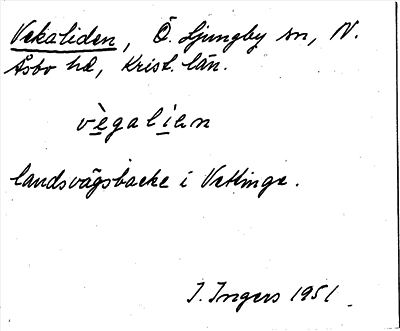 Vekaliden, Ö. Ljungby sn, N.
Åsbo hd, Krist. län.
vègalien
landsvägsbacke i Vettinge.
I. Ingers 1951